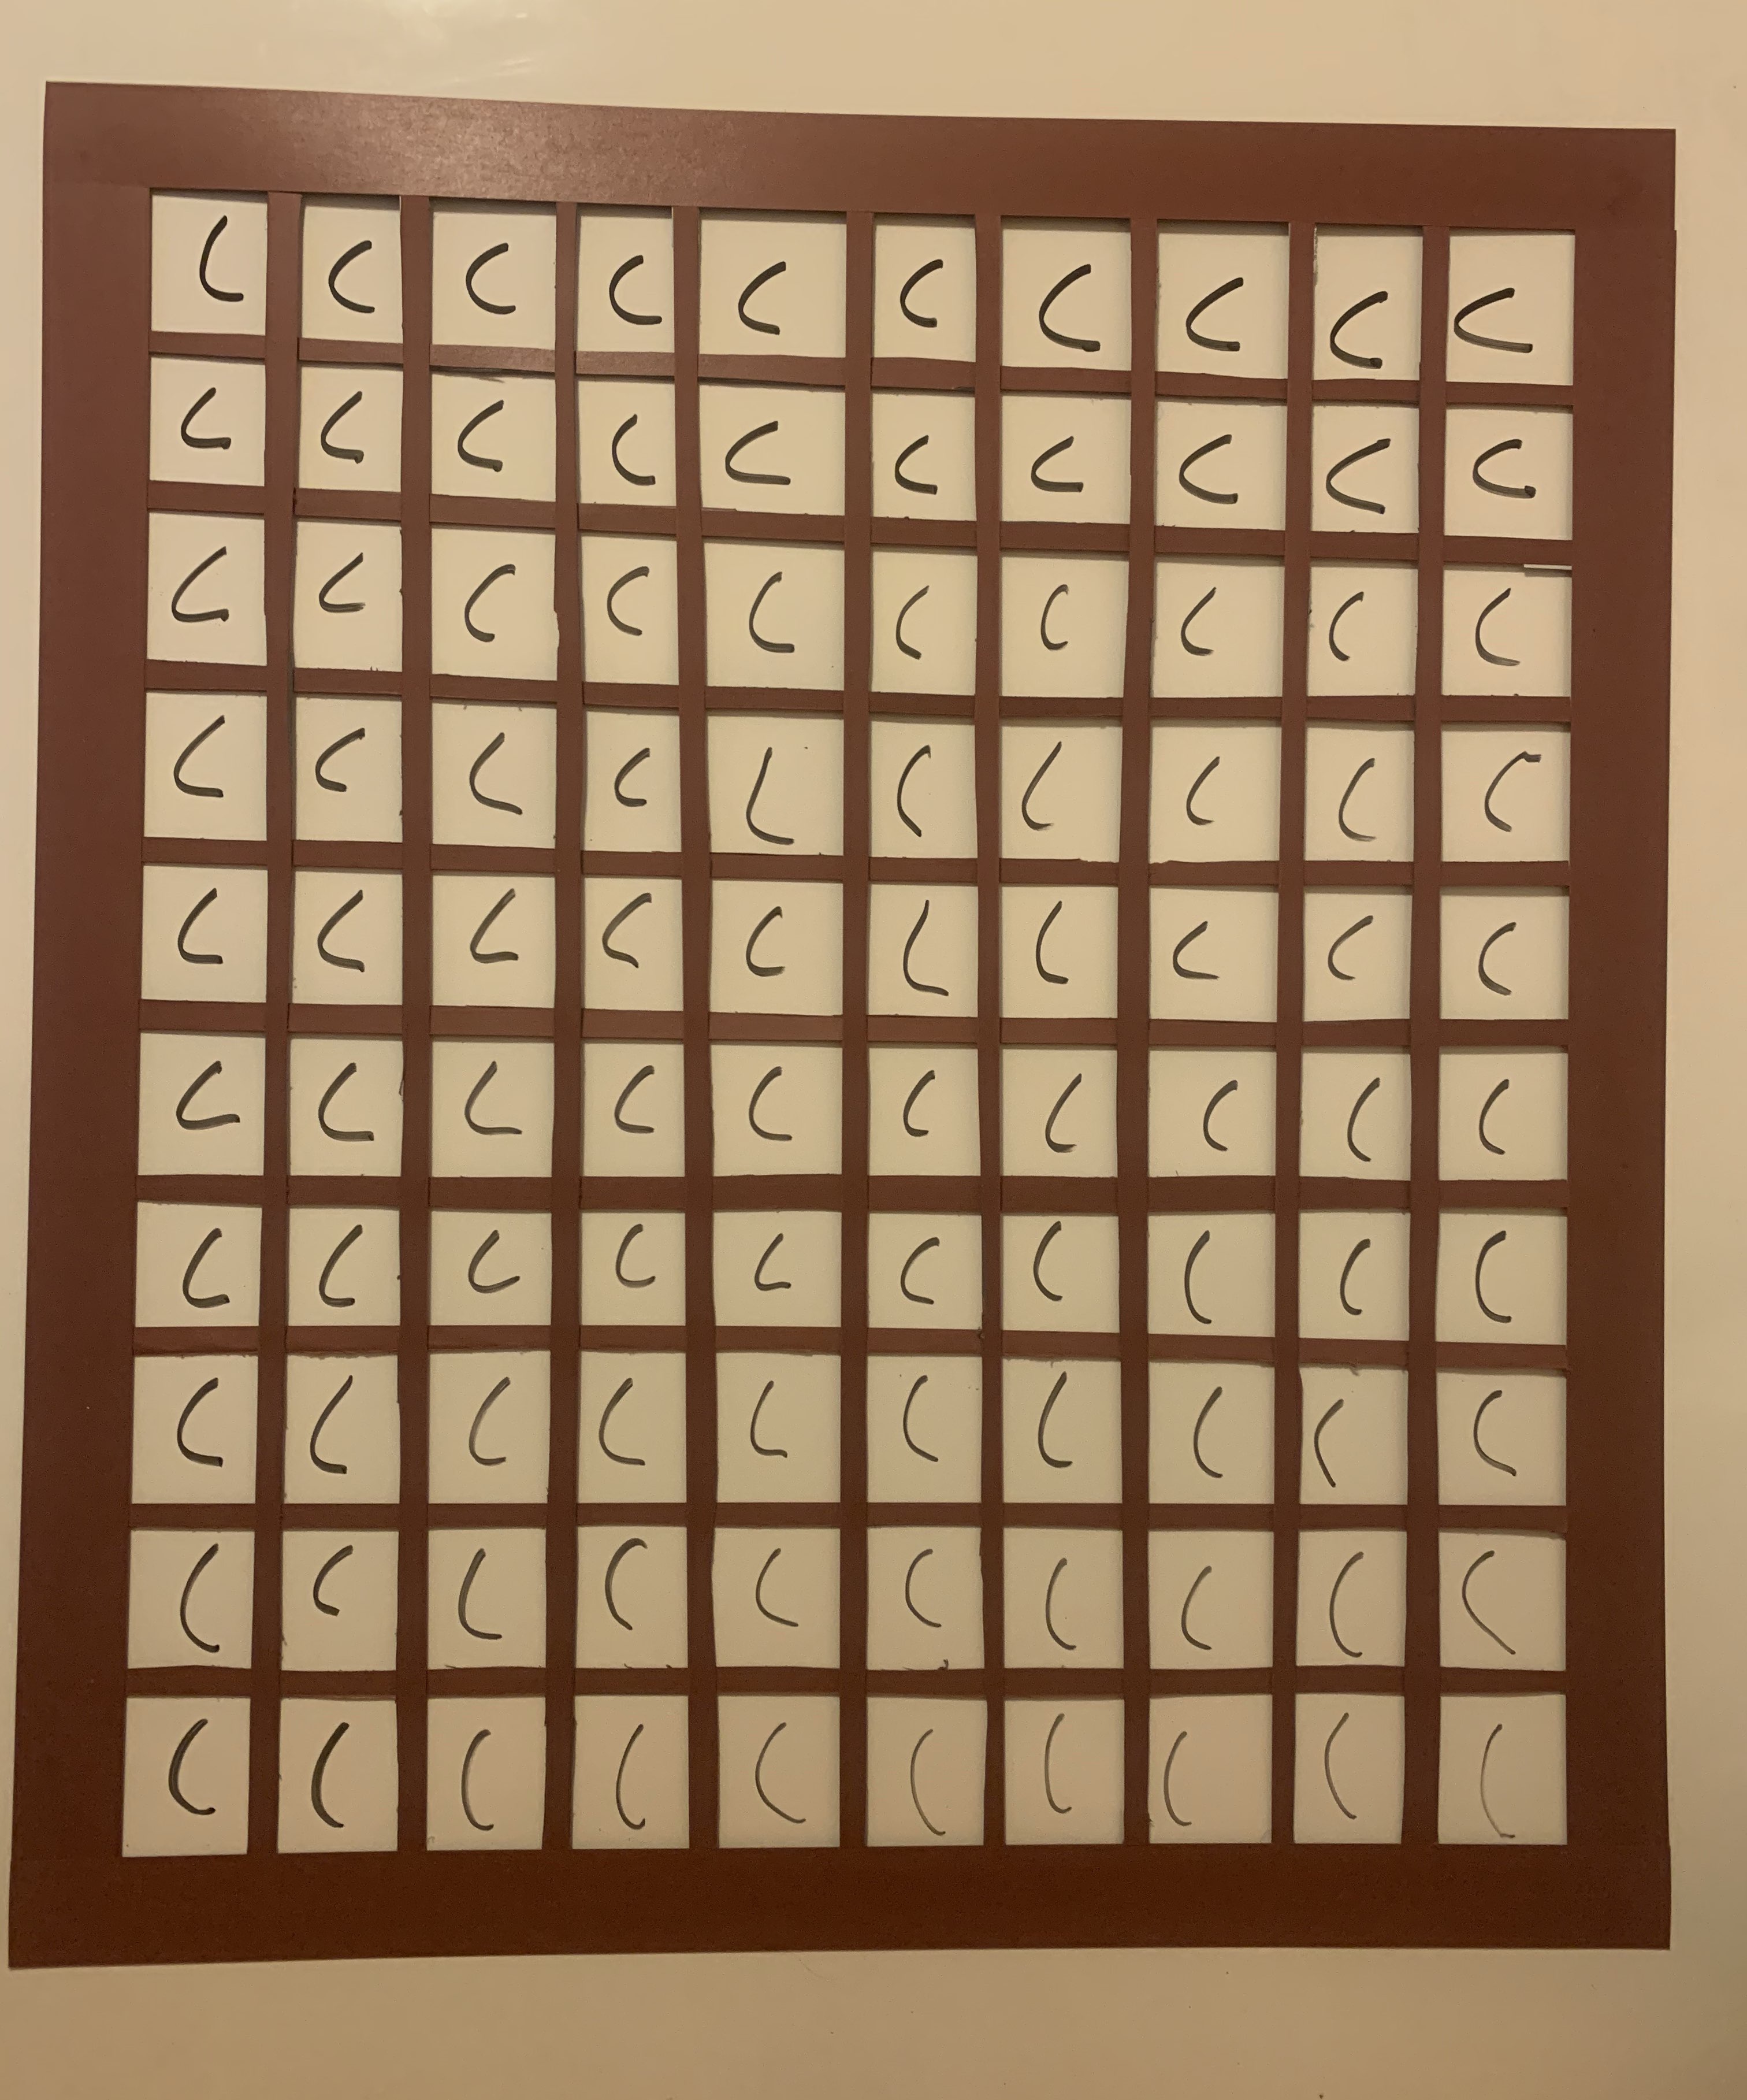 C C C C C C C C C C
C C C C C C C C C C
C C C C C C C C C C
C C C C C C C C C C
C C C C C C C C C C
C C C C C C C C C C
C C C C C C C C C C
C C C C C C C C C C
C C C C C C C C C C
C C C C C C C C C C